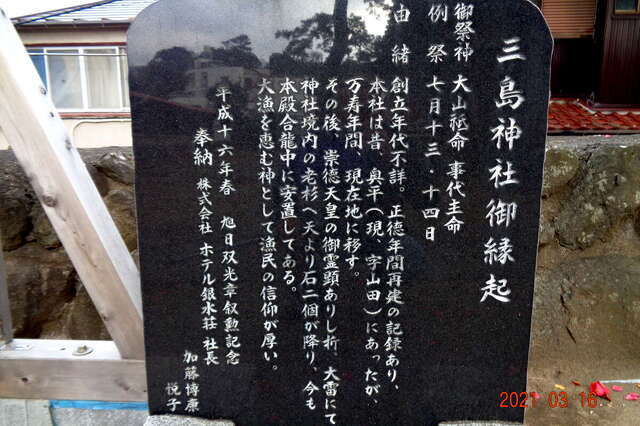 三島神社御縁起
御祭神 大山祗命 事代主命
例祭 七月十三・十四日
由緒 創立年代不詳。正徳年間再建の記録あり、
本社は昔、奥平(現、字山田)にあったが、
万寿年間、現在地に移す。
その後、崇徳天皇の御霊顕ありし折、大雷にて
神社境内の老杉へ天より石二個が降り、今も
本殿合龍中に安置してある。
大漁を恵む神として漁民の信仰が厚い。
平成十六年春 旭日双光章叙勲記念
奉納 株式会社 ホテル銀水荘 社長
加藤博
悦子
2021 03 16